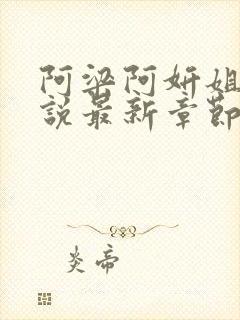 阿梁阿妍姐
說最新章節
炎帝